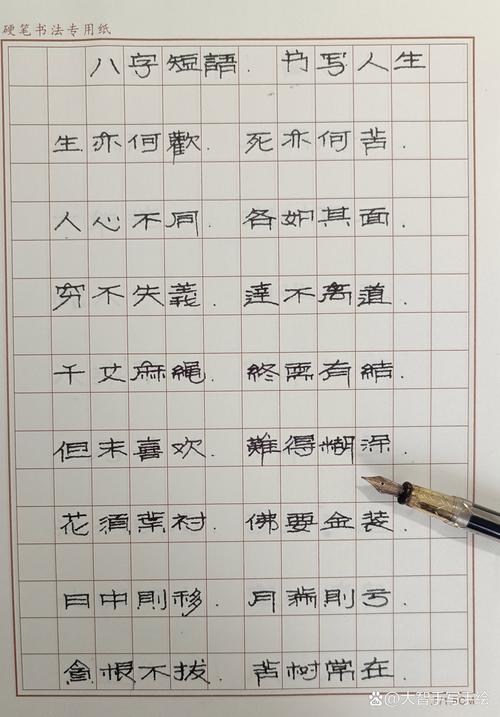 硬笔书法专用纸
八字短語. 书写人生
生亦何歡. 死亦何苦.
人心不同. 各如其面.
穷不失義. 達不离道.
千丈麻繩. 終需有結.
但求喜欢. 難得糊涂.
花須葉衬. 佛要金装.
日中則移. 月满則亏.
贪根不拔. 苦树常在.
大智手写手绘